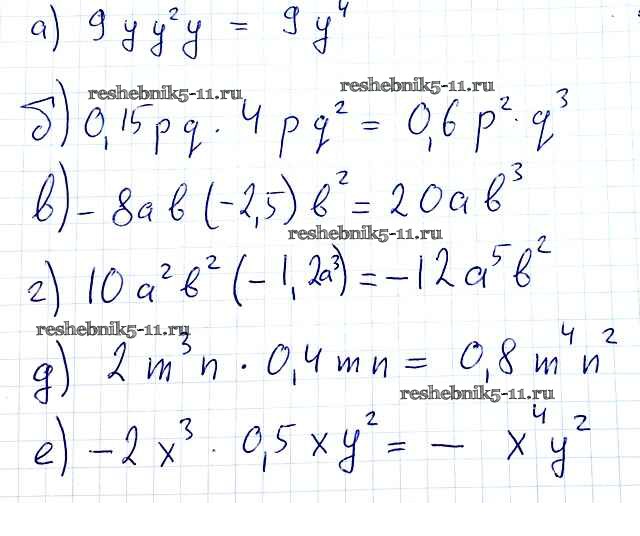 а) 9yy²y = 9y⁴
reshebnik5-11.ru reshebnik5-11.ru
б) 0,15pq · 4pq² = 0,6p² · q³
в) -8ab(-2,5)b² = 20ab³
reshebnik5-11.ru
г) 10a²b²(-1,2a³) = -12a⁵b²
reshebnik5-11.ru
д) 2m³n · 0,4mn = 0,8m⁴n²
reshebnik5-11.ru
е) -2x³ · 0,5xy² = - x⁴y²